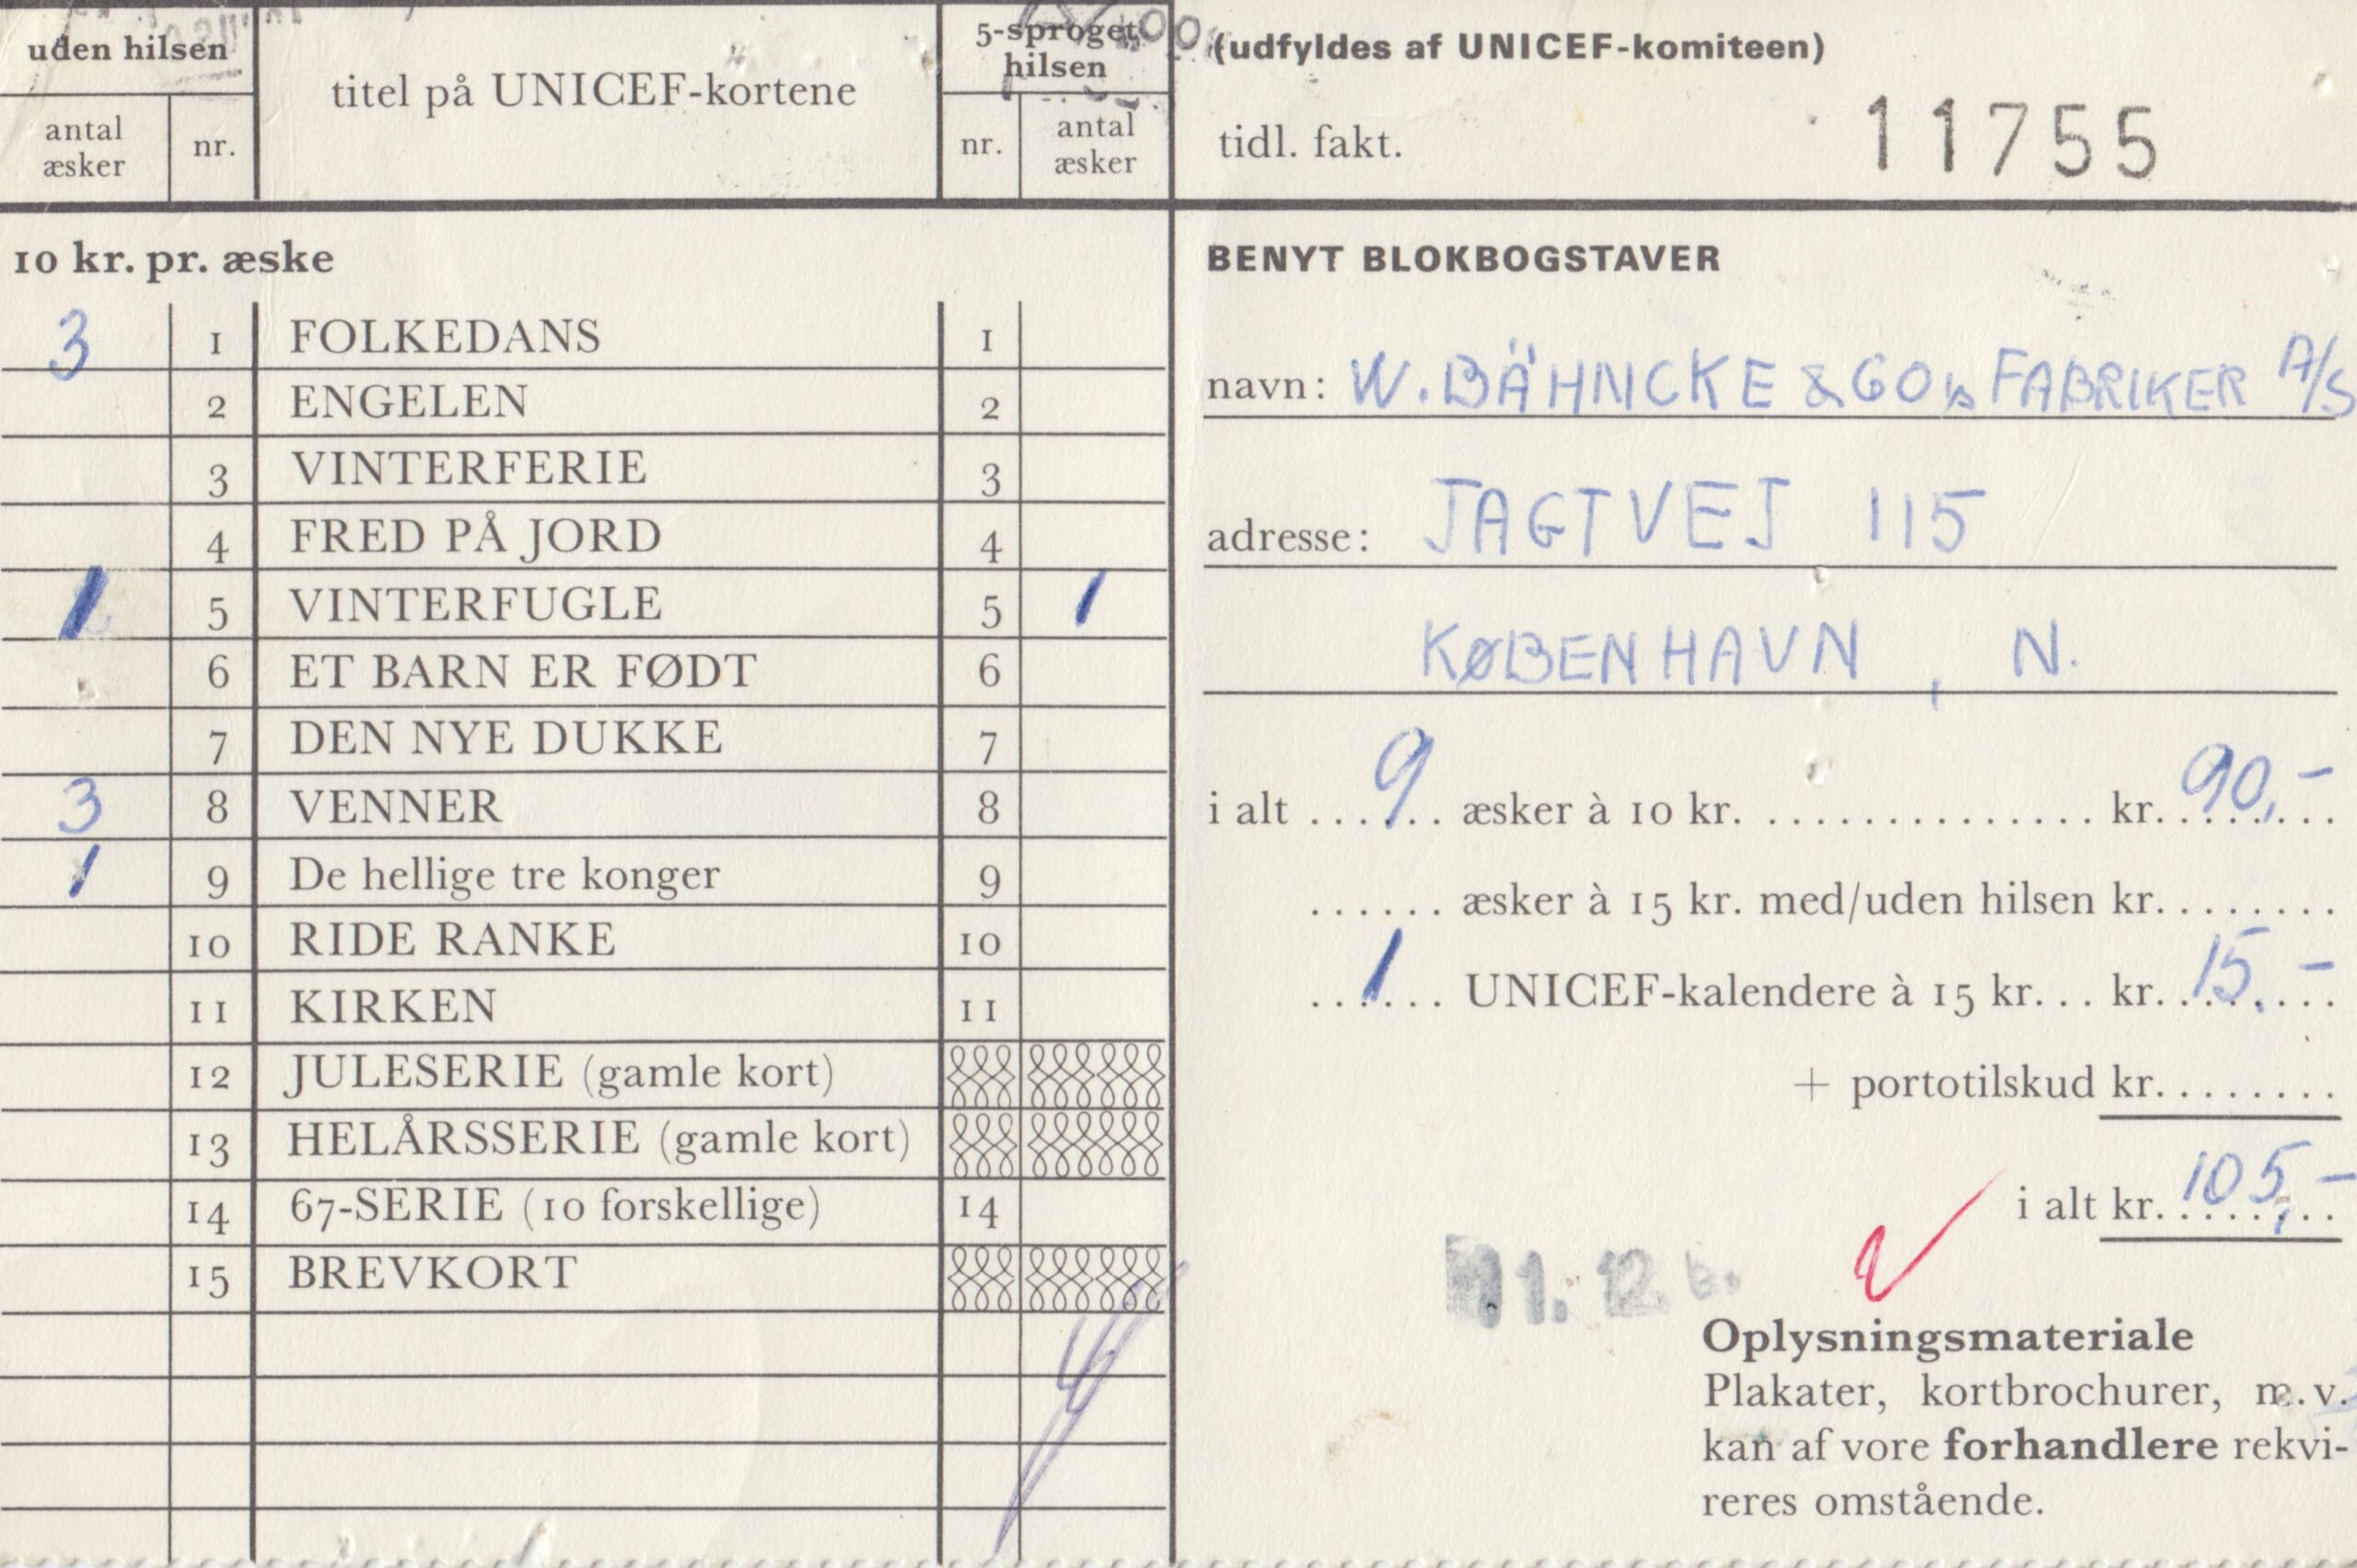 uden hilsen
titel på UNICEF-kortene
5-sproget
hilsen
antal
æsker
nr.
nr.
antal
æsker
(udfyldes af UNICEF-komiteen)
tidl. fakt.
11755
10 kr. pr. æske
3 1 FOLKEDANS 1
2 ENGELEN 2
3 VINTERFERIE 3
4 FRED PÅ JORD 4
1 5 VINTERFUGLE 5 1
6 ET BARN ER FØDT 6
7 DEN NYE DUKKE 7
3 8 VENNER 8
1 9 De hellige tre konger 9
10 RIDE RANKE 10
11 KIRKEN 11
12 JULESERIE (gamle kort)
13 HELÅRSSERIE (gamle kort)
14 67-SERIE (10 forskellige) 14
15 BREVKORT
BENYT BLOKBOGSTAVER
navn: W. BÄHNCKE & COs FABRIKER A/S
adresse: JAGTVEJ 115
KØBENHAVN, N.
i alt ...9... æsker à 10 kr. .............. kr. 90,-
...... æsker à 15 kr. med/uden hilsen kr........
...1... UNICEF-kalendere à 15 kr... kr. 15,-
+ portotilskud kr........
i alt kr. 105,-
11. 12.
Oplysningsmateriale
Plakater, kortbrochurer, m.v.
kan af vore forhandlere rekvi-
reres omstående.